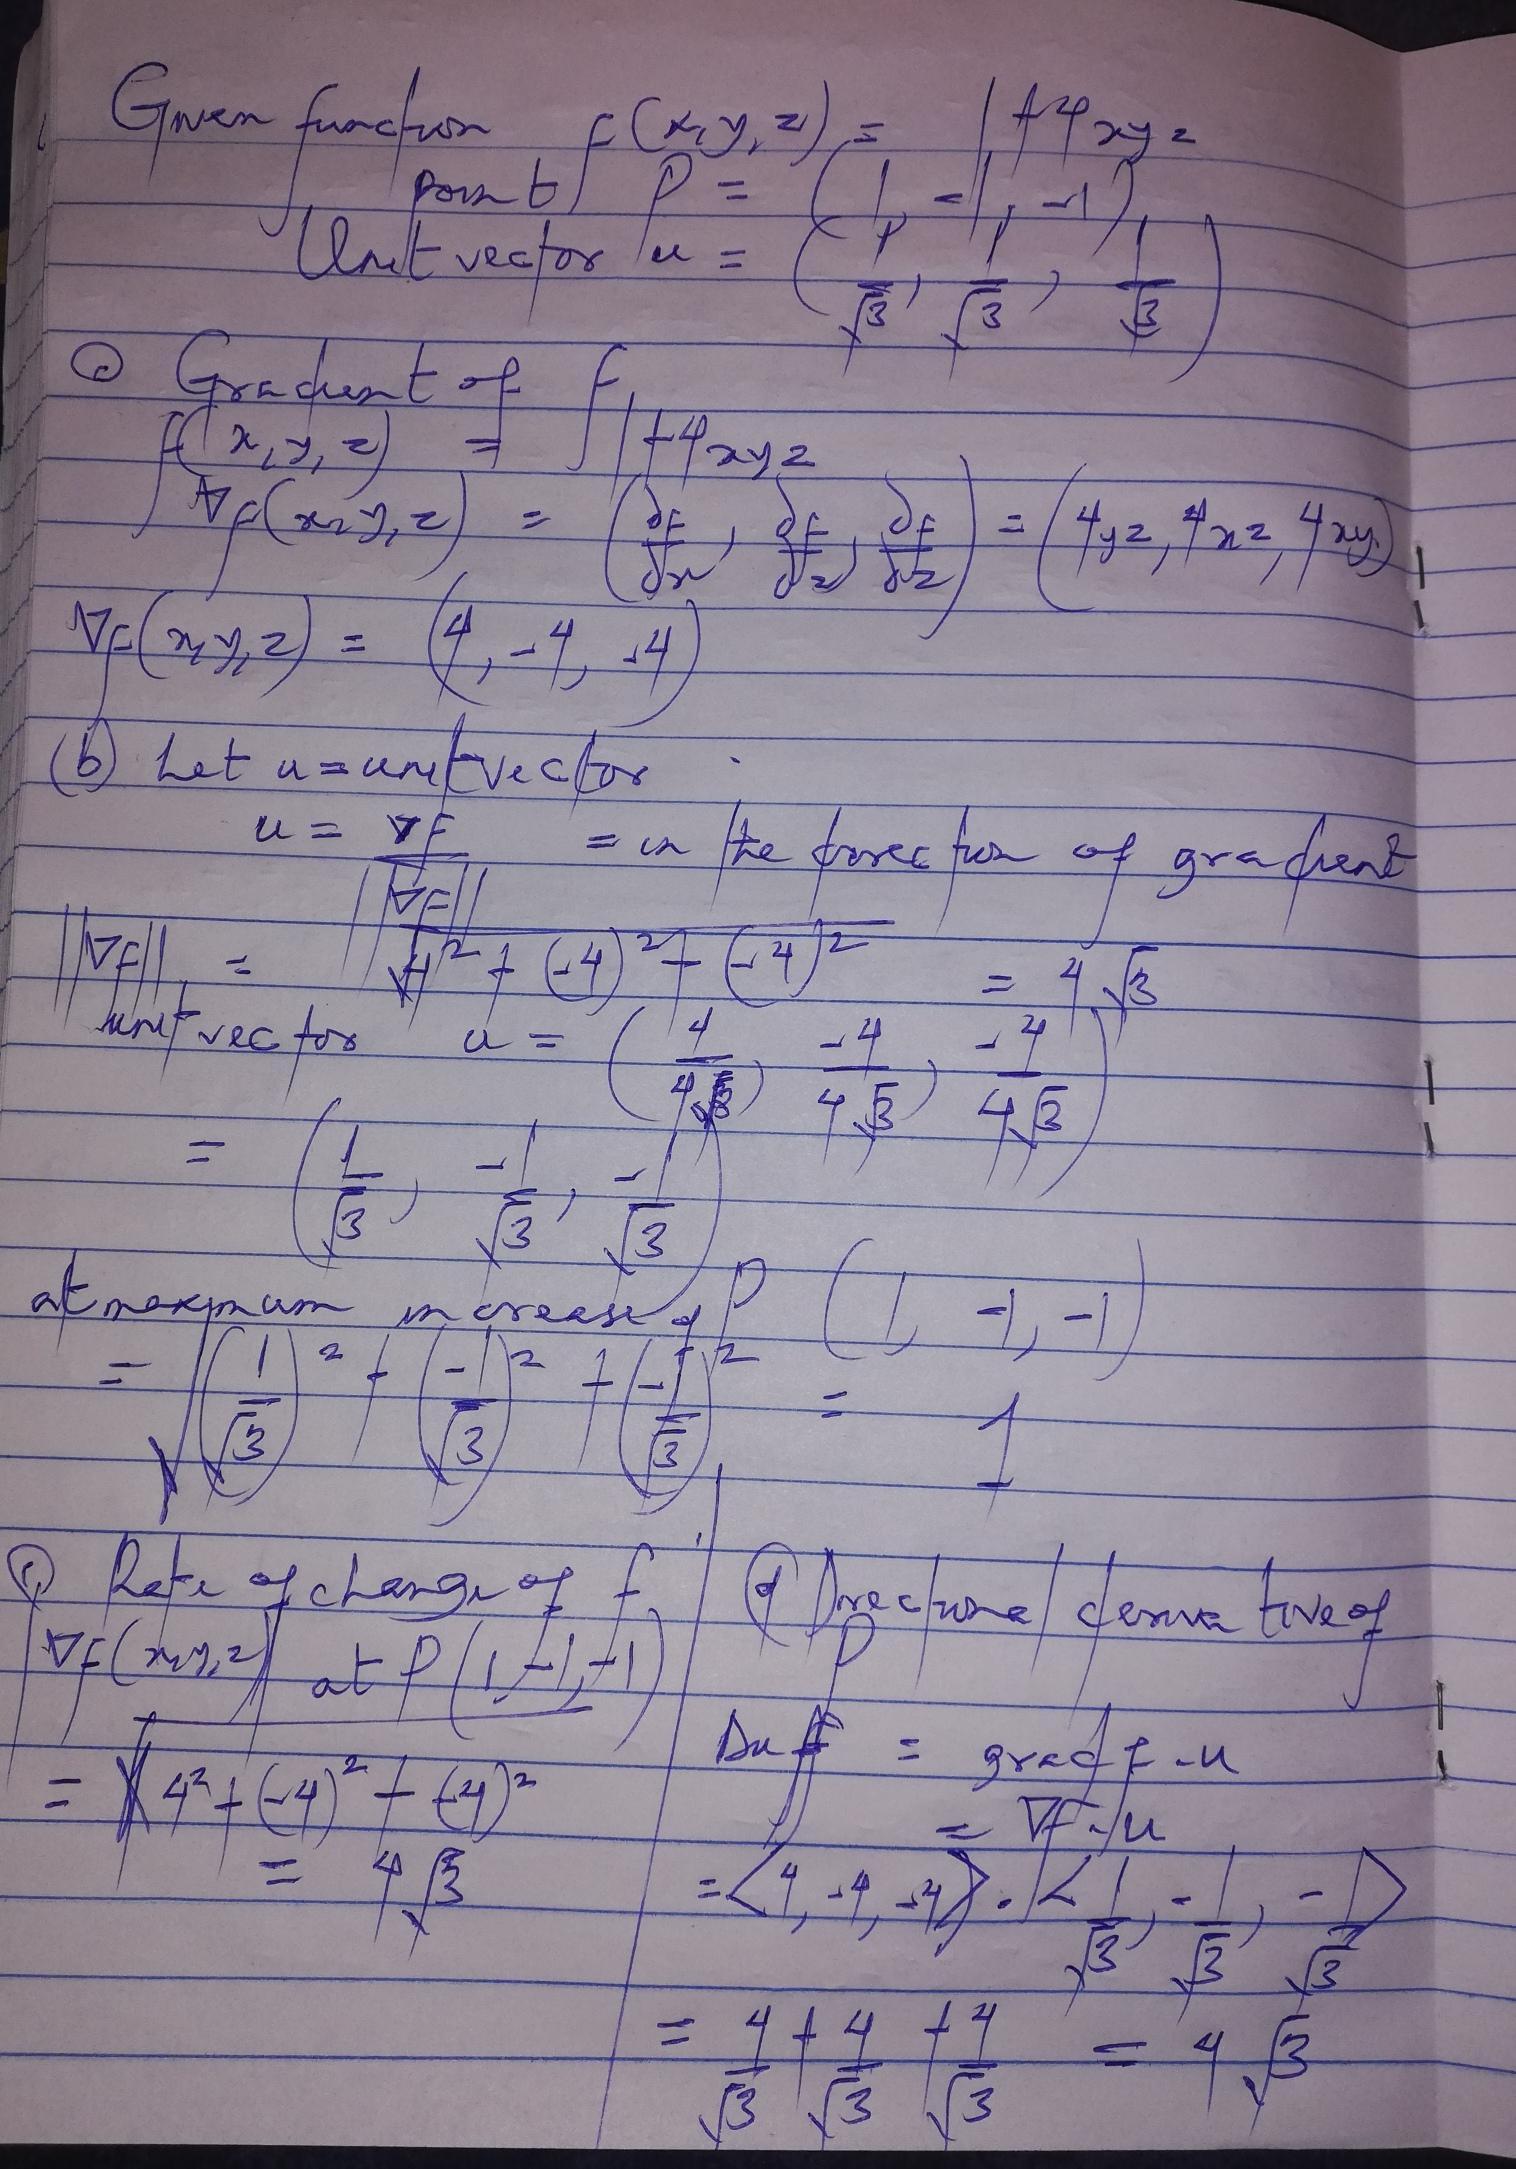 Given function f(x,y,z) = 1+4xyz
point P = (1, -1, -1)
Unit vector u = (1/√3, 1/√3, 1/√3)
a Gradient of f,
f(x,y,z) = 1+4xyz
∇f(x,y,z) = (∂f/∂x, ∂f/∂z, ∂f/∂z) = (4yz, 4xz, 4xy)
∇f(x,y,z) = (4, -4, -4)
(b) Let u = unit vector
u = ∇f/||∇f|| = in the direction of gradient
||∇f|| = √4² + (-4)² + (-4)² = 4√3
unit vector u = (4/4√3, -4/4√3, -4/4√3)
= (1/√3, -1/√3, -1/√3)
at maximum increase of P (1, -1, -1)
= √(1/√3)² + (-1/√3)² + (-1/√3)² = 1
c Rate of change of f
∇f(x,y,z) at P(1,-1,-1)
= √4² + (-4)² + (-4)²
= 4√3
d Directional derivative of
P
Du f = grad f - u
= ∇f - u
= <4, -4, -4> . <1/√3, -1/√3, -1/√3>
= 4/√3 + 4/√3 + 4/√3 = 4√3